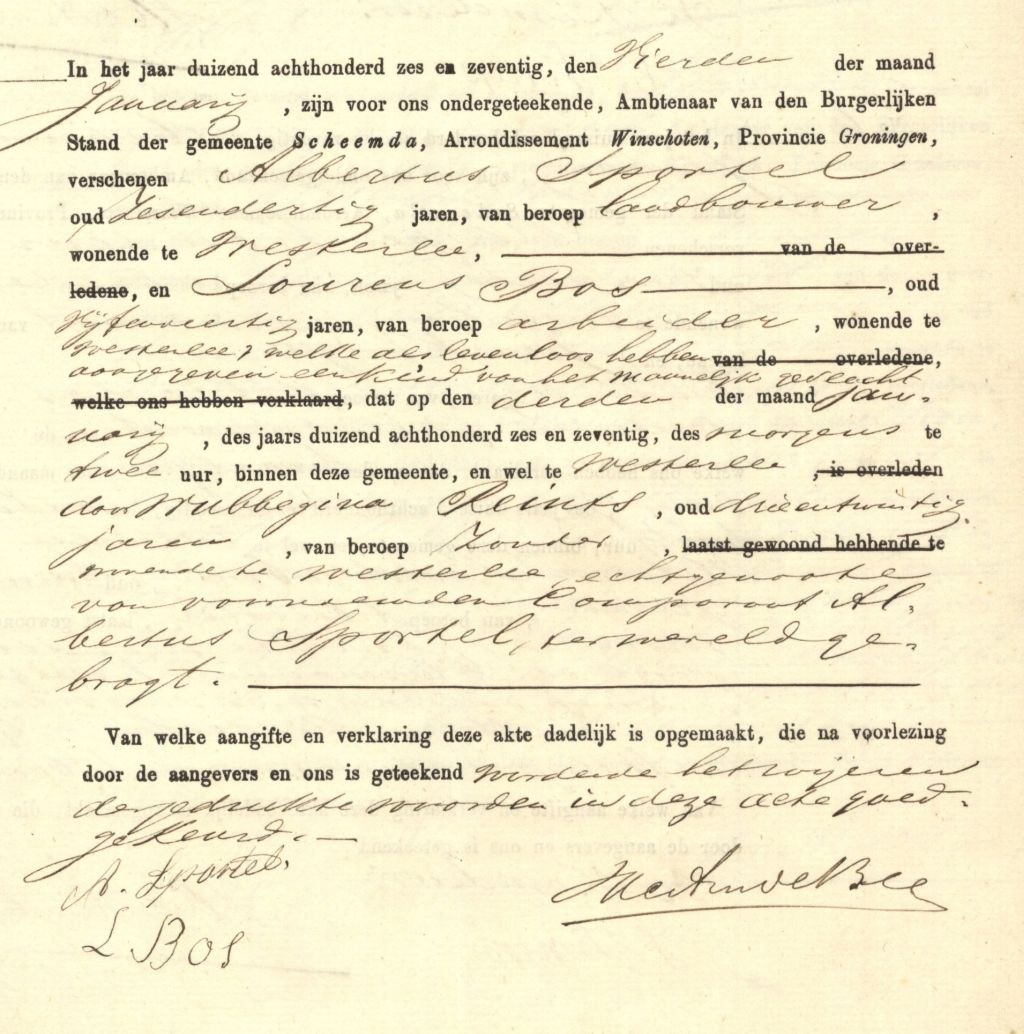 In het jaar duizend achthonderd zes en zeventig, den Vierden der maand
January, zijn voor ons ondergeteekende, Ambtenaar van den Burgerlijken
Stand der gemeente Scheemda, Arrondissement Winschoten, Provincie Groningen,
verschenen Albertus Sportel
oud Zesendertig jaren, van beroep landbouwer,
wonende te Westerlee, van de over-
ledene, en Lourens Bos, oud
Vijfenveertig jaren, van beroep arbeider, wonende te
Westerlee, welke als levenloos hebben van de overledene,
aangegeven een kind van het mannelijk geslacht
welke ons hebben verklaard, dat op den derden der maand Jan-
uary, des jaars duizend achthonderd zes en zeventig, des morgens te
twee uur, binnen deze gemeente, en wel te Westerlee, is overleden
door Wubbegina Reints, oud drieentwintig
jaren, van beroep Zonder, laatst gewoond hebbende te
wonende te Westerlee, echtgenoote
van voornoemden Comparant Al-
bertus Sportel, ter wereld ge-
bragt.
Van welke aangifte en verklaring deze akte dadelijk is opgemaakt, die na voorlezing
door de aangevers en ons is geteekend wordende het roijeren
der gedrukte woorden in deze acte goed-
gekeurd.
A. Sportel.
L Bos